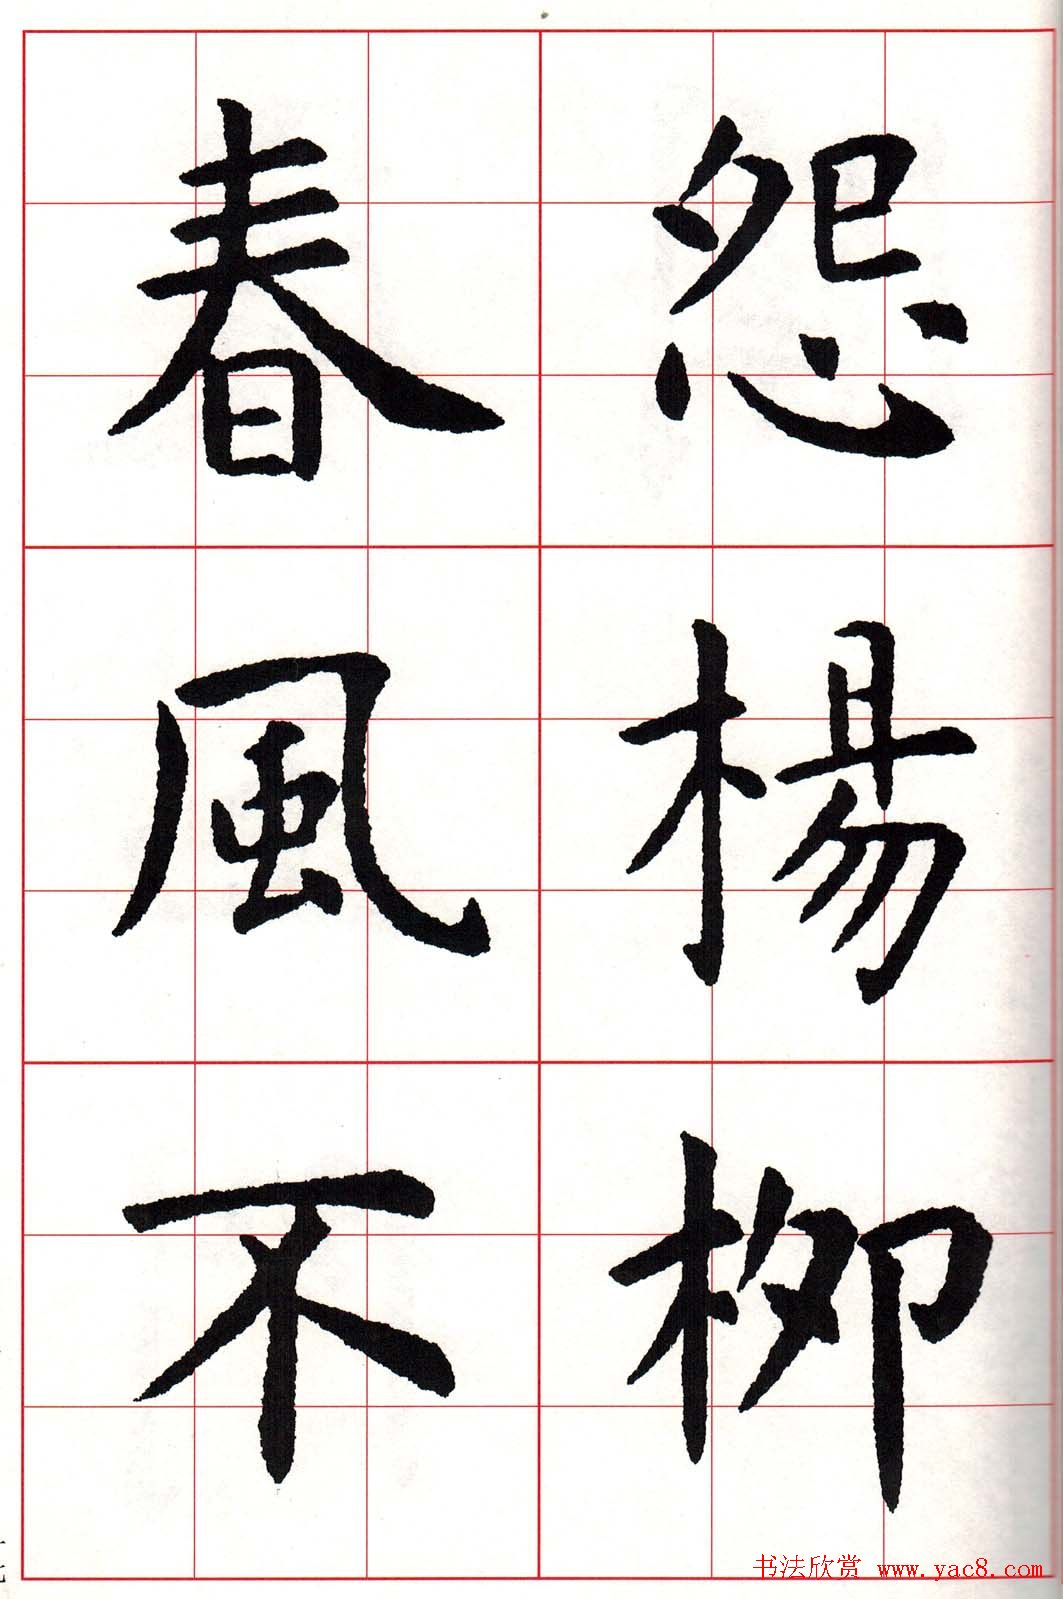 怨楊柳
春風不
书法欣赏 www.yac8.com